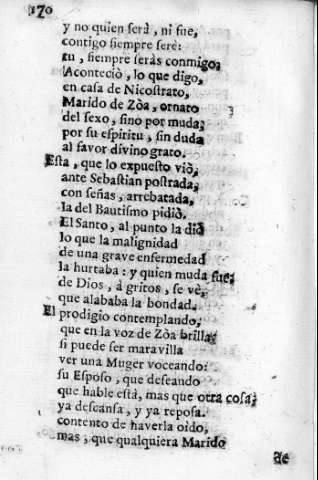 170
y no quien serà, ni fue,
contigo siempre serè:
tu, siempre seràs conmigo;
Aconteciò, lo que digo,
en casa de Nicostrato,
Marido de Zòa, ornato
del sexo, sino por muda;
por su espiritu, sin duda
al favor divino grato.
Esta, que lo expuesto viò,
ante Sebastian postrada,
con señas, arrebatada,
la del Bautismo pidiò.
El Santo, al punto la diò
lo que la malignidad
de una grave enfermedad
la hurtaba: y quien muda fue,
de Dios, à gritos, se vè,
que alababa la bondad.
El prodigio contemplando,
que en la voz de Zòa brilla,
si puede ser maravilla
ver una Muger voceando:
su Esposo, que deseando
que hable està, mas que otra cosa,
ya descansa, y ya reposa
contento de haverla oìdo,
mas, que qualquiera Marido
de